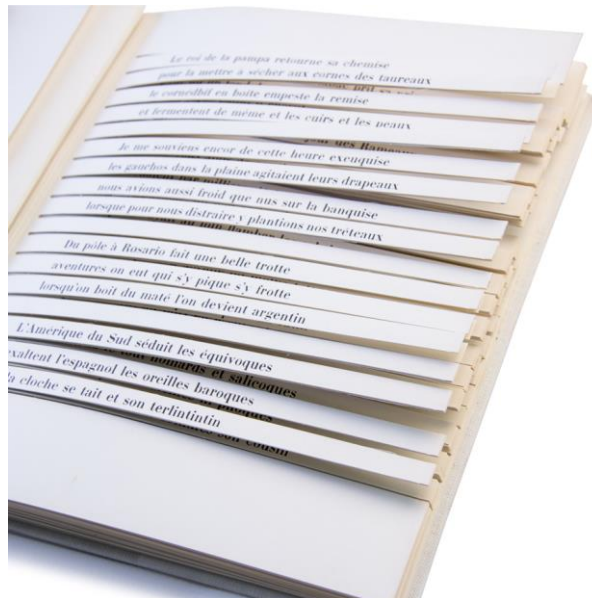 Le roi de la pampa retourne sa chemise
pour la mettre à sécher aux cornes des taureaux
le cornédbîf en boîte empeste la remise
et fermentent de même et les cuirs et les peaux
Je me souviens encor de cette heure exeuquise
les gauchos dans la plaine agitaient leurs drapeaux
nous avions aussi froid que nus sur la banquise
lorsque pour nous distraire y plantions nos tréteaux
Du pôle à Rosario fait une belle trotte
aventures on eut qui s'y pique s'y frotte
lorsqu'on boit du maté l'on devient argentin
L'Amérique du Sud séduit les équivoques
homards et salicoques
exaltent l'espagnol les oreilles baroques
la cloche se tait et son terlintintin
son cousin